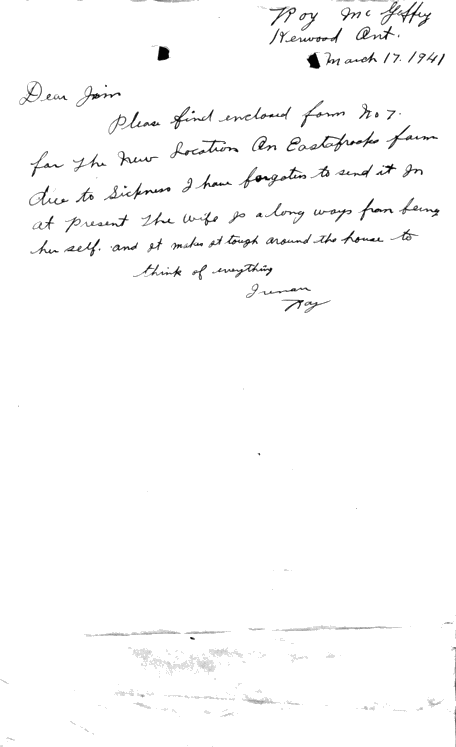 Roy McGaffey
Kerwood Ont.
March 17. 1941
Dear Jim
Please find enclosed form No 7.
for The New Location On Eastabrooks farm
due to Sickness I have forgoten to send it In
at present The Wife Is a long ways from being
her self. and it makes it tough around the house to
think of everything
I reman
Roy